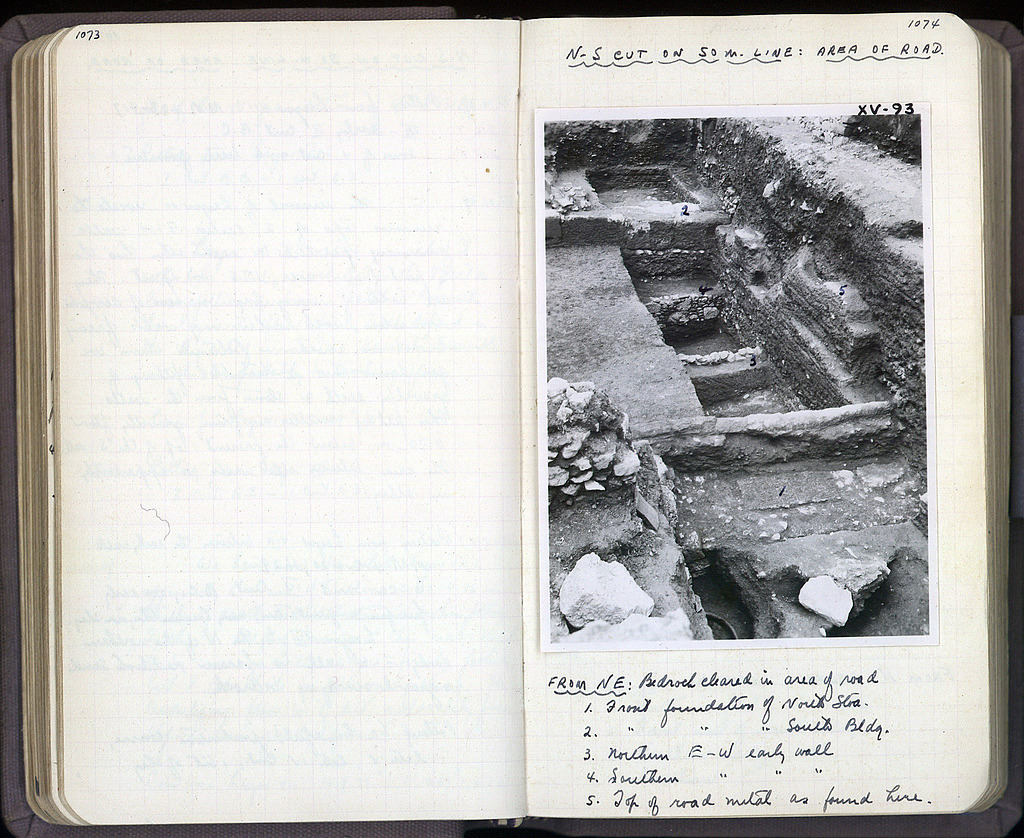 1073
1074
N-S CUT ON 50 M. LINE: AREA OF ROAD.
XV-93
2
4
5
3
1
FROM NE: Bedrock cleared in area of road
1. Front foundation of North Stoa.
2. " " " South Bldg.
3. Northern E-W early wall
4. Southern " " "
5. Top of road metal as found here.